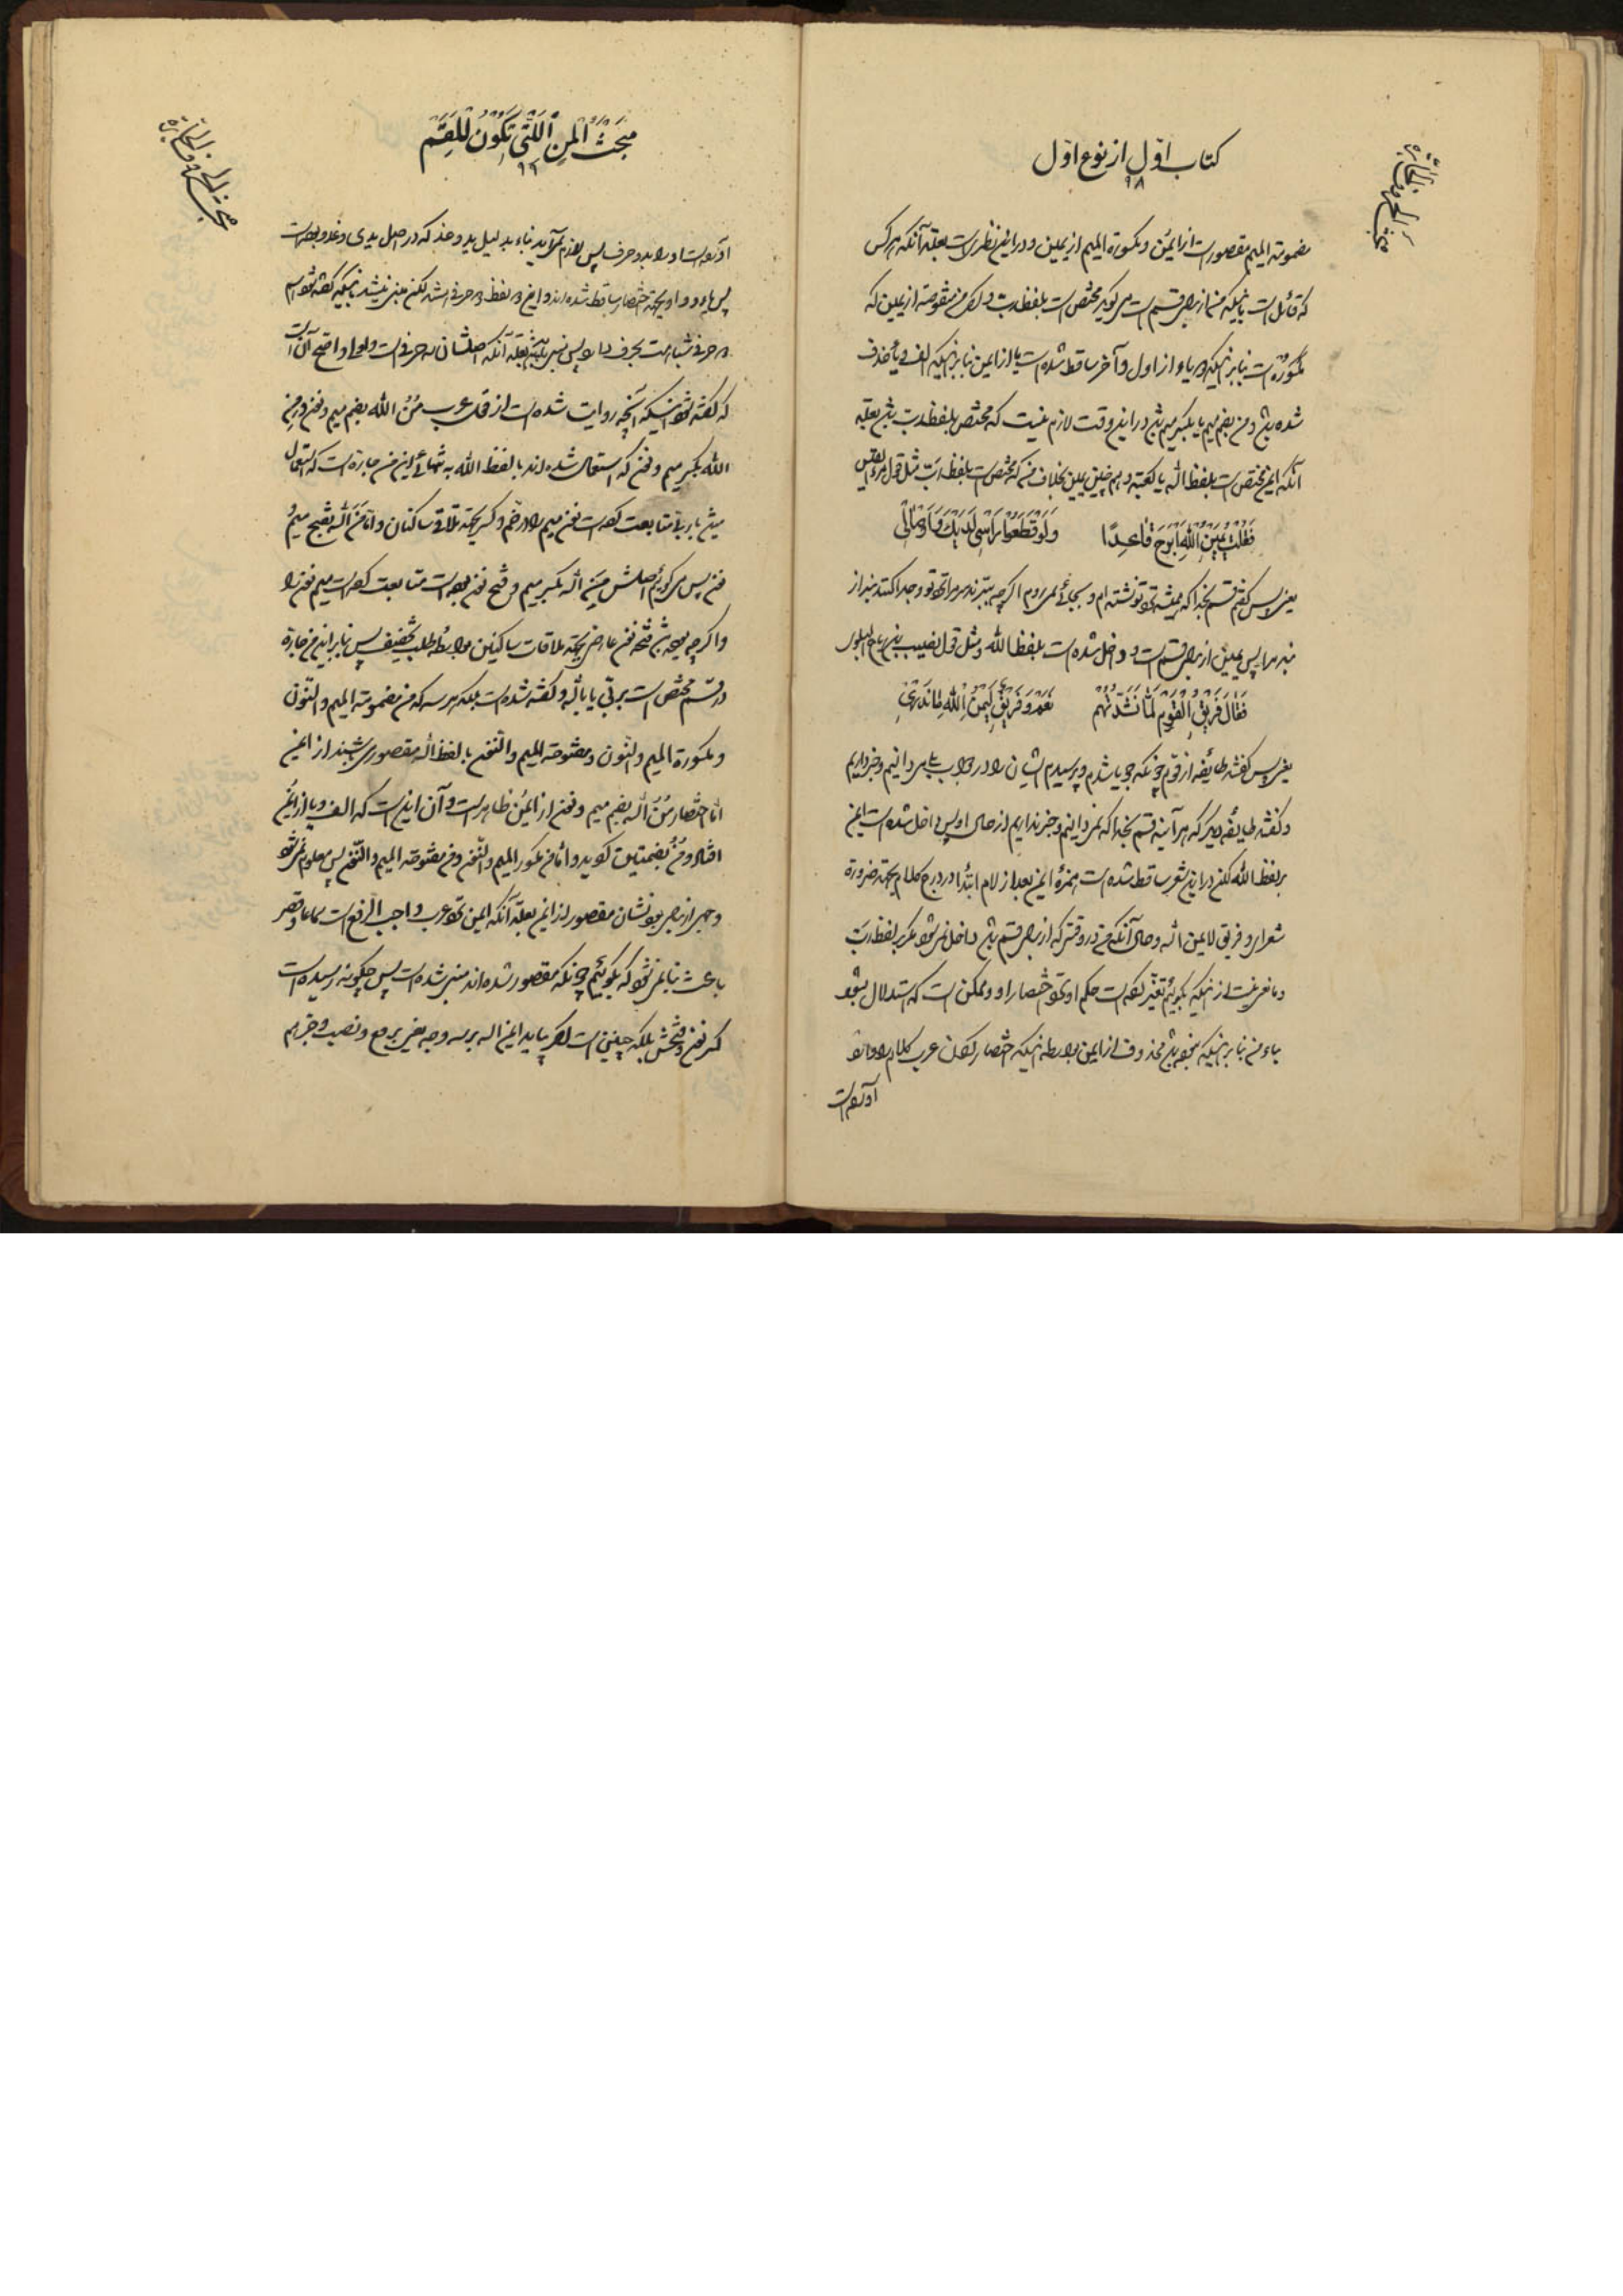 کتاب اول از نوع اول
۹۸
مضمومة المیم مقصور است از ایمن و مکسورة المیم از یمین و در این نظر است بعلة آنکه هر کس
که قائل است باینکه من از برای قسم است می گوید مختص است بلفظ رب و لکن من مقوصه از یمین که
مکسوره است بنا بر اینکه یاء از اول و آخر ساقط شده است یا از ایمن بنا بر اینکه الف و یا حذف
شده باشد و من بضم میم یا بکسر میم باشد در این وقت لازم نیست که مختص بلفظ رب باشد بعلة
آنکه ایمن مختص است بلفظ الله یا کعبة و هم چنین یمین بخلاف من که مختص است بلفظ رب مثل قول امرء القیس
فَقُلْتُ یَمِینُ اللهِ اَبْرَحُ قَاعِدًا وَلَوْ قَطَعُوا رَاْسِی لَدَیْكَ وَاَوْصَالِی
یعنی پس گفتم قسم بخدا که همیشه نزد تو نشسته ام و بجائی نمی روم اگر چه ببرند سر مرا نزد تو و جدا کنند بند از
بند مرا پس یمین از برای قسم است و داخل شده است بلفظ الله و مثل قول نصیب بن رباح
فَقَالَ فَرِیقُ الْقَوْمِ لَمَّا نَشَدْتُهُمْ نَعَمْ وَفَرِیقٌ لَیْمُنُ اللهِ مَا نَدْرِی
یعنی پس گفتند طایفه از قوم چونکه جویا شدم و پرسیدم ایشان را در جواب بلی می دانیم و خبر داریم
و گفتند طایفه دیگر که هر آینه قسم بخدا که نمی دانیم و خبر نداریم از حال او پس داخل شده است ایمن
بر لفظ الله لکن در این شعر ساقط شده است همزۀ ایمن بعد از لام ابتدا در درج کلام بجهة ضرورة
شعر ای و فریق لایمن الله و حال آنکه من در وقتی که از برای قسم باشد داخل نمی شود مگر بر لفظ رب
و مانعی نیست از اینکه بگوئیم تغییر کرده است حکم او نزد اختصار او و ممکن است که استدلال بشود
بناء من بنا بر اینکه بوده باشد محذوف از ایمن بواسطه اینکه اختصار کردن عرب کلام را و
آورده است
مبحثُ الْمِنِ اللَّتِی تَکُونُ لِلْقَسَمِ
۹۹
آورده است او را بدو حرف پس لازم نمی آید بناء بدلیل ید و غد که در اصل یدی و غدو بوده است
پس یاء و واو بجهة اختصار ساقط شده اند و این دو لفظ دو حرفی اند لکن مبنی نیستند باینکه گفته شود اسم
دو حرفی شباهت بحرف دارد پس مبنی باشند بعلة آنکه اصلشان سه حرفی است و واضح آن است
که گفته شود اینکه آنچه روایت شده است از قول عرب مُنُ الله بضم میم و نون و مِنِ
الله بکسر میم و نون که استعمال شده اند با لفظ الله به تنهائی این من جاره است که استعمال
می شود با ربی متابعت کرده است نون میم را در ضم و کسر بجهة تلاقی ساکنان و اما مَنَ الله بفتح میم و
نون پس می گوئیم اصلش مِنَ الله بکسر میم و فتح نون بوده است متابعت کرده است میم نون را
و اگر چه بوده باشد فتحه نون عارضی بجهة ملاقات ساکنین بواسطه طلب تخفیف پس بنا بر این من جاره
در قسم مختص است بربی یا بالله و گفته شده است بلکه هر سه که من مضمومة المیم و النون
و مکسورة المیم و النون و مفتوحة المیم و النون با لفظ الله مقصور می باشند از ایمن
اما اختصار مُنُ الله بضم میم و نون از ایمُن ظاهر است و آن این است که الف و یا از ایمن
افتاد و مُنُ بضمتین گوید و اما من مکسور المیم و النون و من مفتوحة المیم و النون پس معلوم نمی شود
وجهی از برای بودنشان مقصور از ایمن بعلة آنکه ایمن نزد عرب واجب الرفع است سماعا و قصر
باعث بنا نمی شود که بگوئیم چونکه مقصور شده اند مبنی شده است پس چگونه رسیده است
کسر نون و فتحش بلکه چنین است اگر بیاید ایمن الله بر سه وجه یعنی برفع و نصب و جر هم